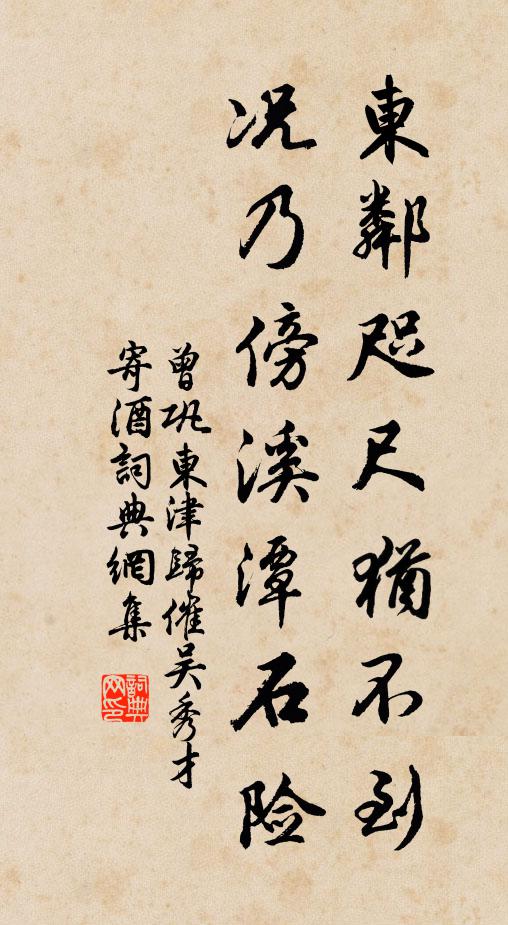 東鄰咫尺猶不到
況乃傍溪潭石险
曾巩東津歸催吴秀才
寄酒詞典網集
詞典
网印